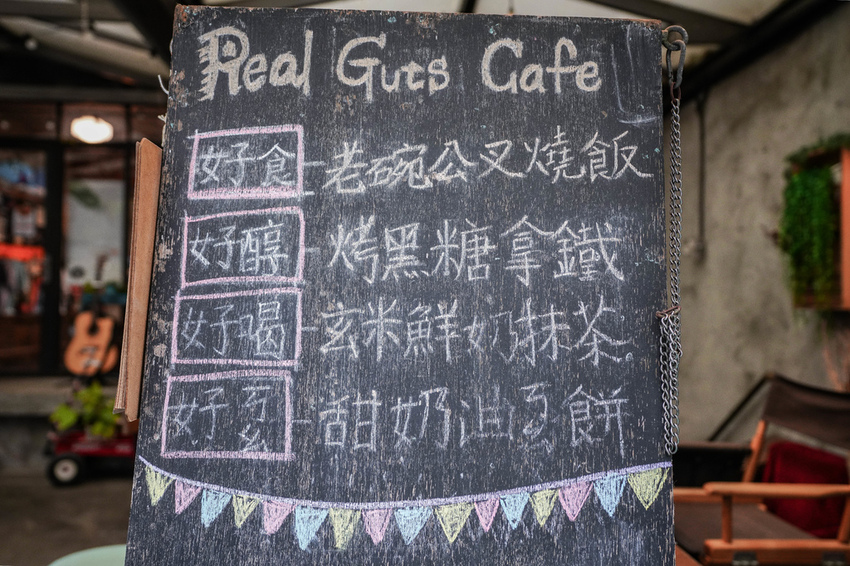 Real Guts Cafe
好食-老碗公叉燒飯
好醇-烤黑糖拿鐵
好喝-玄米鮮奶抹茶
好ㄎㄠ-甜奶油ㄋㄢ餅